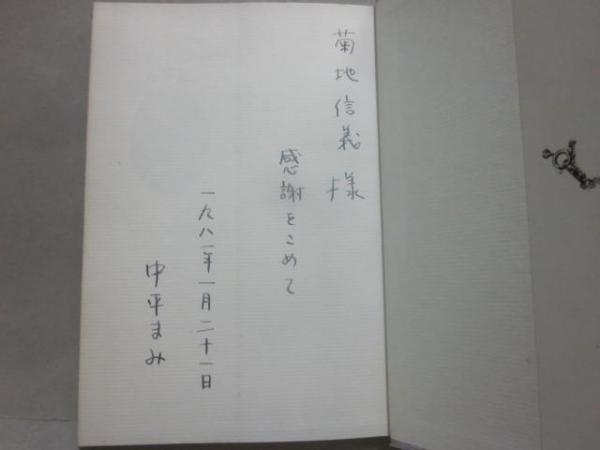 菊地信義様
感謝をこめて
一九八一年一月二十一日
中平まみ